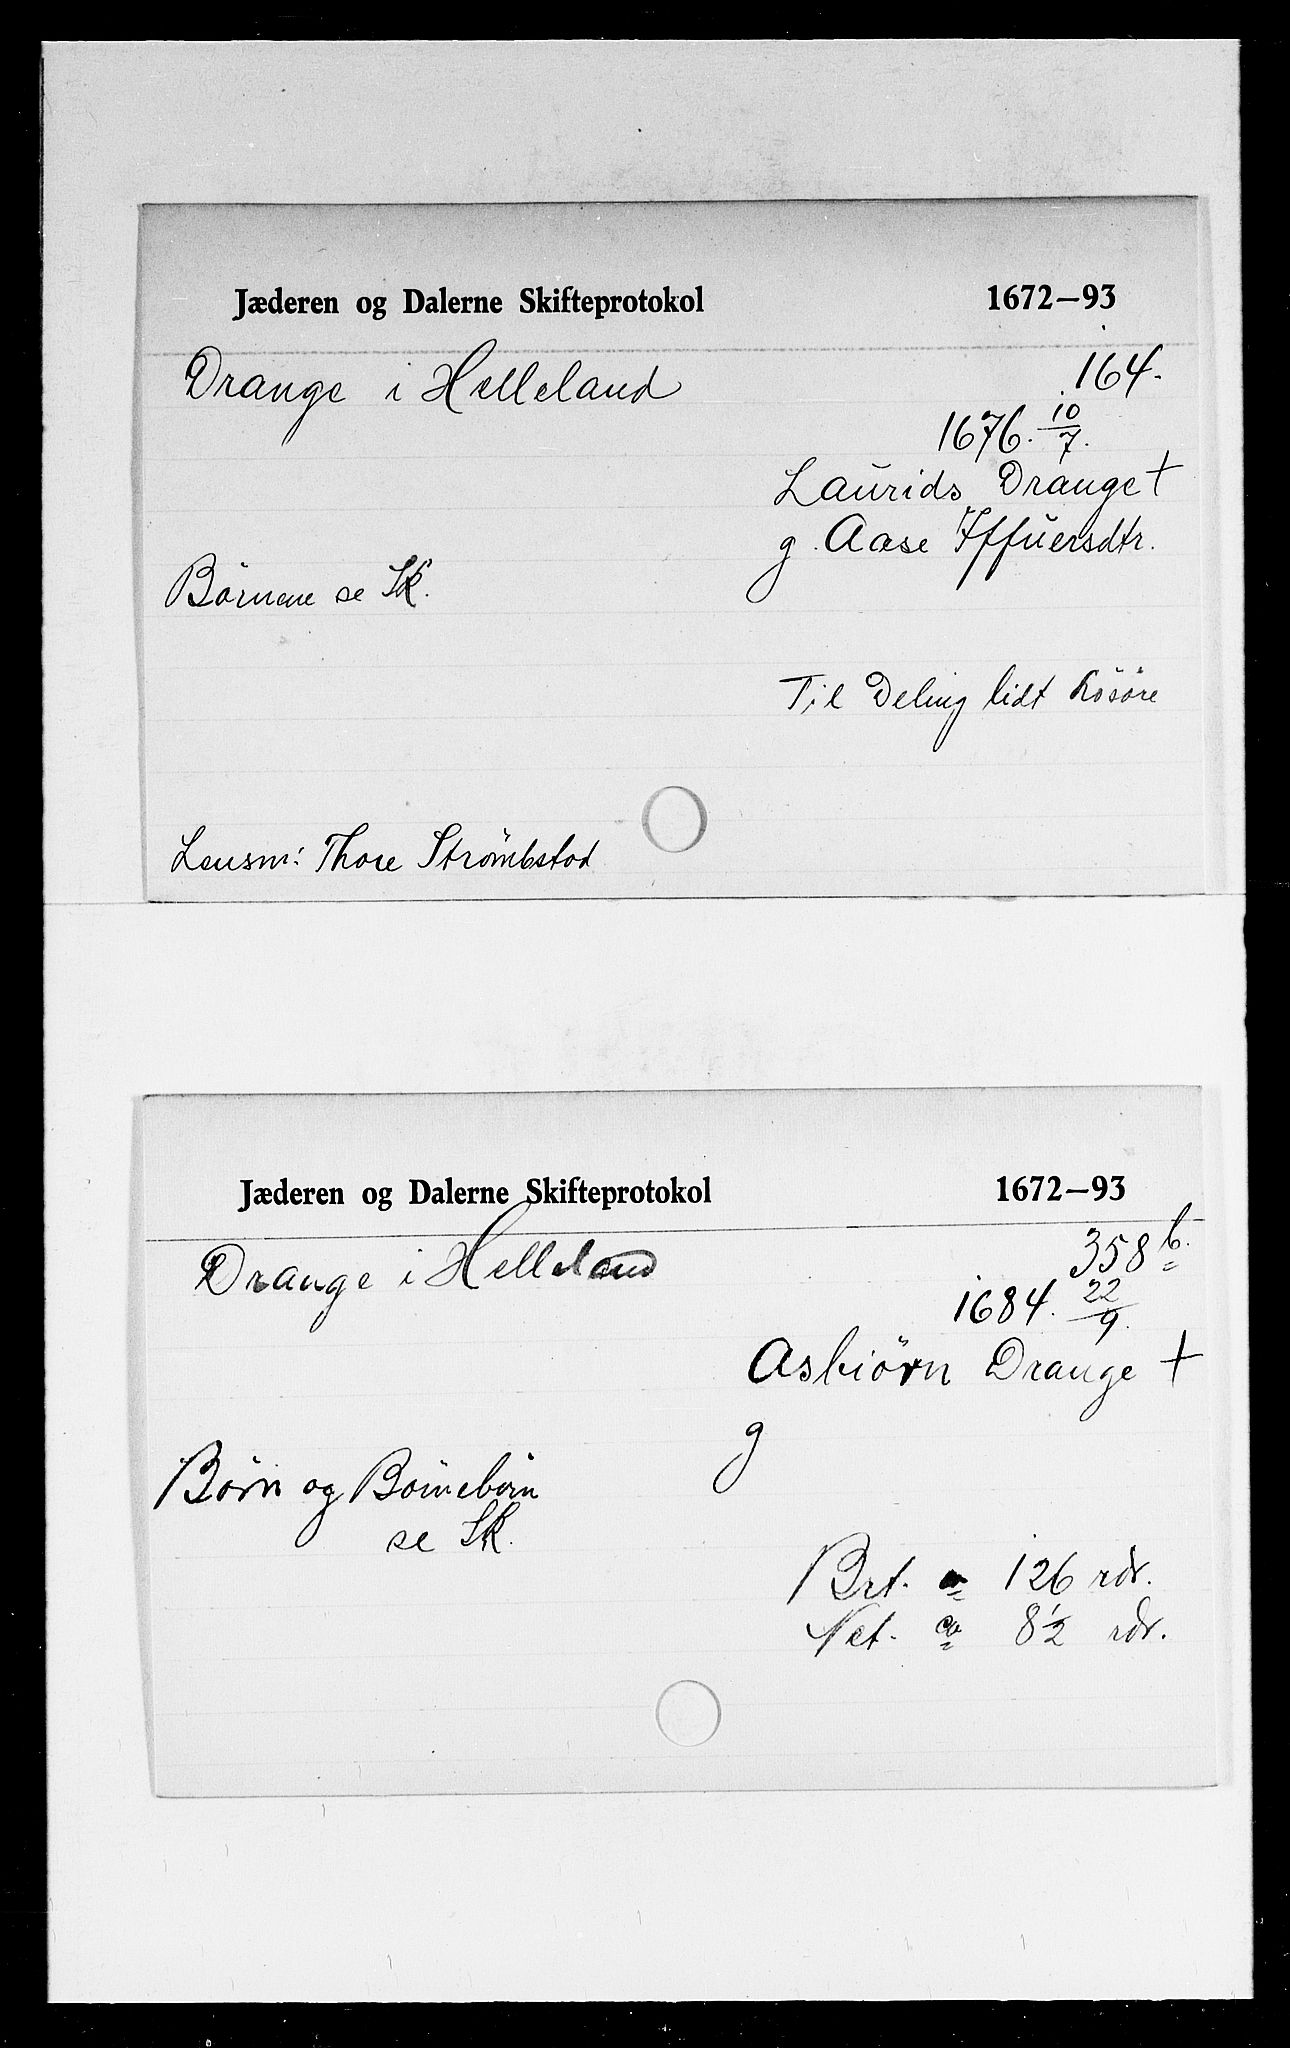 Jæderen og Dalerne Skifteprotokol 1672–93
Drange i Helleland 164.
1676. 10/7.
Laurids Drange †
g. Aase Iffuersdtr.
Børnene se Sk.
Til Deling lidt Løsøre
Lensm: Thore Strømbstod
Jæderen og Dalerne Skifteprotokol 1672–93
Drange i Helleland 358 b.
1684. 22/9.
Asbiørn Drange †
g
Børn og Børnebørn
se Sk.
Brt. 126 rdr.
Net. 8½ rdr.